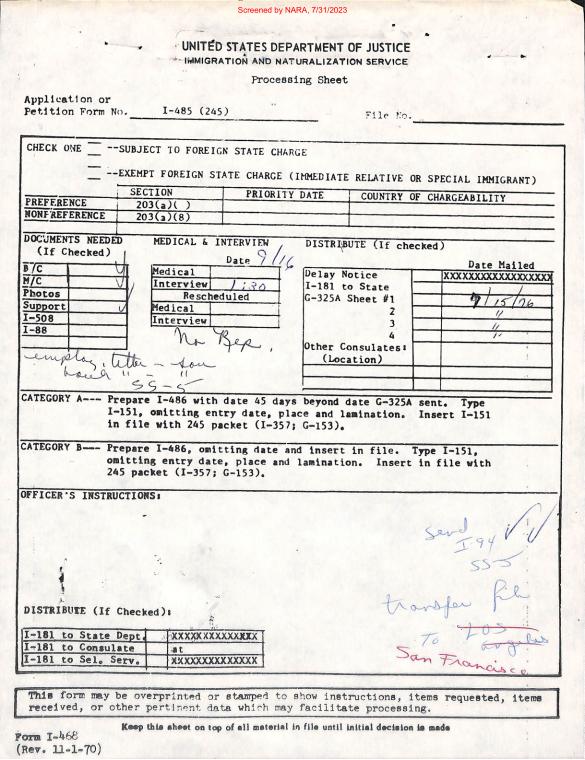 Screened by NARA, 7/31/2023
UNITED STATES DEPARTMENT OF JUSTICE
IMMIGRATION AND NATURALIZATION SERVICE
Processing Sheet
Application or
Petition Form No. I-485 (245) File No.
CHECK ONE --SUBJECT TO FOREIGN STATE CHARGE
--EXEMPT FOREIGN STATE CHARGE (IMMEDIATE RELATIVE OR SPECIAL IMMIGRANT)
SECTION PRIORITY DATE COUNTRY OF CHARGEABILITY
PREFERENCE 203(a)( )
NONFREFERENCE 203(a)(8)
DOCUMENTS NEEDED MEDICAL & INTERVIEW DISTRIBUTE (If checked)
(If Checked) Date 9/16 Date Mailed
B/C Medical Delay Notice XXXXXXXXXXXXXXXXXX
M/C Interview 1:30 I-181 to State
Photos Rescheduled G-325A Sheet #1 9/15/76
Support Medical 2 "
I-508 Interview 3 "
I-88 4 "
No Rep. Other Consulates:
(Location)
employ. letter - son
" -
SS-5
CATEGORY A--- Prepare I-486 with date 45 days beyond date G-325A sent. Type
I-151, omitting entry date, place and lamination. Insert I-151
in file with 245 packet (I-357; G-153).
CATEGORY B--- Prepare I-486, omitting date and insert in file. Type I-151,
omitting entry date, place and lamination. Insert in file with
245 packet (I-357; G-153).
OFFICER'S INSTRUCTIONS:
send
I-94
SS-5
transfer file
To Los
Angeles
San Francisco
DISTRIBUTE (If Checked):
I-181 to State Dept. XXXXXXXXXXXXX
I-181 to Consulate at
I-181 to Sel. Serv. XXXXXXXXXXXXX
This form may be overprinted or stamped to show instructions, items requested, items
received, or other pertinent data which may facilitate processing.
Keep this sheet on top of all material in file until initial decision is made
Form I-468
(Rev. 11-1-70)